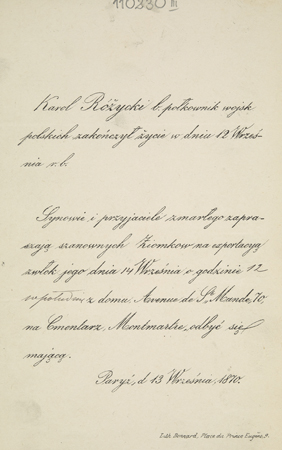 110330 III
Karol Różycki b. połkownik wojsk
polskich zakończył życie w dniu 12 Wrześ-
nia r. b.
Synowie i przyjaciele zmarłego zapra-
szają szanownych Ziomkow na exportacyą
zwłok jego dnia 14 Września o godzinie 12
w południe z domu Avenue de St. Mandé, 70,
na Cmentarz Montmartre, odbyć się
mającą.
Paryż, d. 13 Września, 1870.
Lith. Bonnard, Place du Prince Eugène, 9.